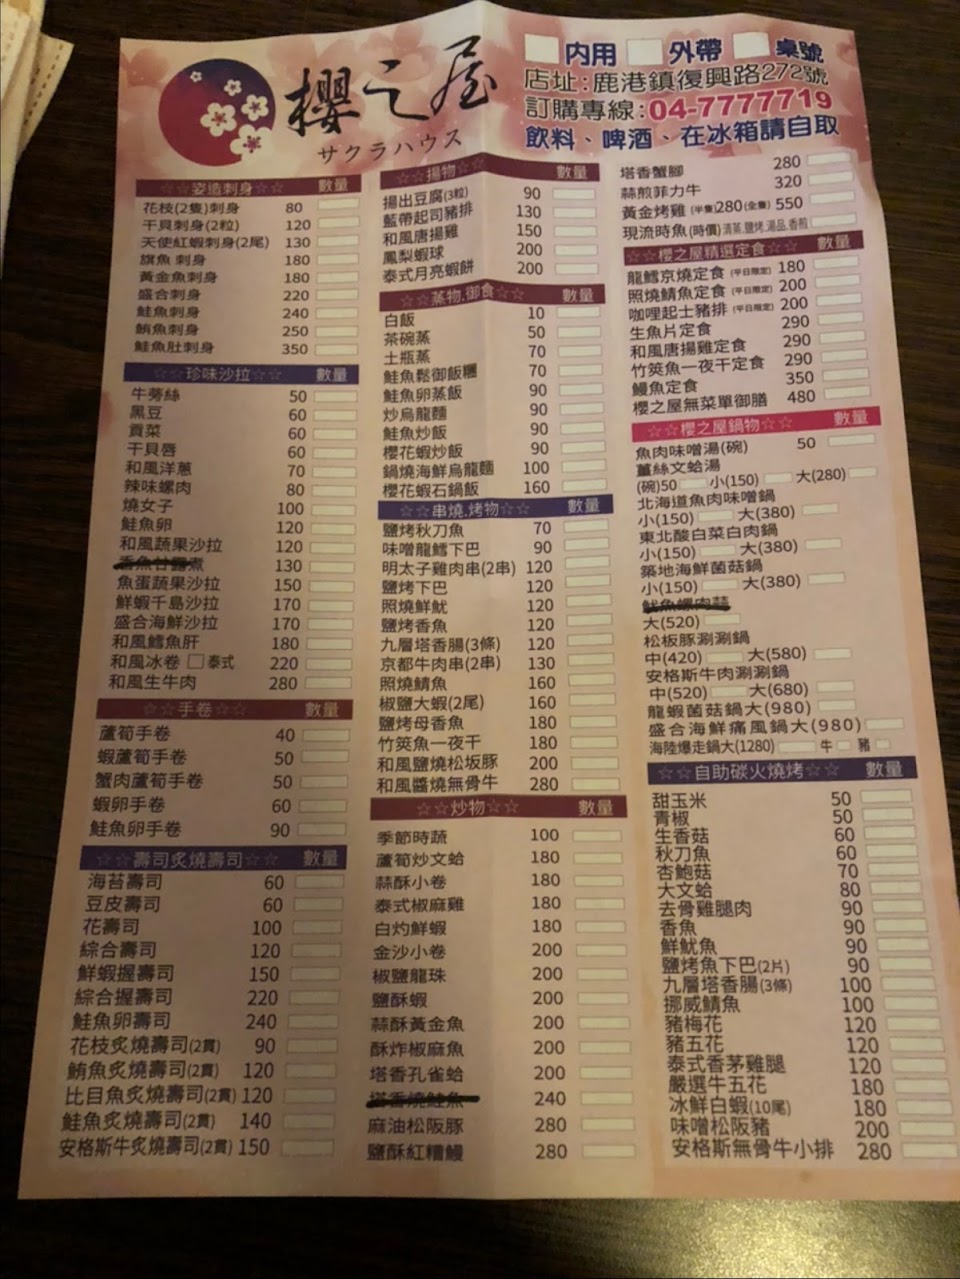 櫻之屋
サクラハウス
內用 外帶 桌號
店址:鹿港鎮復興路272號
訂購專線:04-7777719
飲料、啤酒、在冰箱請自取
☆☆姿造刺身☆☆ 數量
花枝(2隻)刺身 80
干貝刺身(2粒) 120
天使紅蝦刺身(2尾) 130
旗魚 刺身 180
黃金魚刺身 180
盛合刺身 220
鮭魚刺身 240
鮪魚刺身 250
鮭魚肚刺身 350
☆☆珍味沙拉☆☆ 數量
牛蒡絲 50
黑豆 60
貢菜 60
干貝唇 60
和風洋蔥 70
辣味螺肉 80
燒女子 100
鮭魚卵 120
和風蔬果沙拉 120
香魚甘露煮 130
魚蛋蔬果沙拉 150
鮮蝦千島沙拉 170
盛合海鮮沙拉 170
和風鱈魚肝 180
和風冰卷 □泰式 220
和風生牛肉 280
☆☆手卷☆☆ 數量
蘆筍手卷 40
蝦蘆筍手卷 50
蟹肉蘆筍手卷 50
蝦卵手卷 60
鮭魚卵手卷 90
☆☆壽司炙燒壽司☆☆ 數量
海苔壽司 60
豆皮壽司 60
花壽司 100
綜合壽司 120
鮮蝦握壽司 150
綜合握壽司 220
鮭魚卵壽司 240
花枝炙燒壽司(2貫) 90
鮪魚炙燒壽司(2貫) 120
比目魚炙燒壽司(2貫) 120
鮭魚炙燒壽司(2貫) 140
安格斯牛炙燒壽司(2貫) 150
☆☆揚物☆☆ 數量
揚出豆腐(3粒) 90
藍帶起司豬排 130
和風唐揚雞 150
鳳梨蝦球 200
泰式月亮蝦餅 200
☆☆蒸物.御食☆☆ 數量
白飯 10
茶碗蒸 50
土瓶蒸 70
鮭魚鬆御飯糰 70
鮭魚卵蒸飯 90
炒烏龍麵 90
鮭魚炒飯 90
櫻花蝦炒飯 90
鍋燒海鮮烏龍麵 100
櫻花蝦石鍋飯 160
☆☆串燒.烤物☆☆ 數量
鹽烤秋刀魚 70
味噌龍鱈下巴 90
明太子雞肉串(2串) 120
鹽烤下巴 120
照燒鮮魷 120
鹽烤香魚 120
九層塔香腸(3條) 120
京都牛肉串(2串) 130
照燒鯖魚 160
椒鹽大蝦(2尾) 160
鹽烤母香魚 180
竹筴魚一夜干 180
和風鹽燒松坂豚 200
和風醬燒無骨牛 280
☆☆炒物☆☆ 數量
季節時蔬 100
蘆筍炒文蛤 180
蒜酥小卷 180
泰式椒麻雞 180
白灼鮮蝦 180
金沙小卷 200
椒鹽龍珠 200
鹽酥蝦 200
蒜酥黃金魚 200
酥炸椒麻魚 200
塔香孔雀蛤 200
塔香燒鮭魚 240
麻油松阪豚 280
鹽酥紅糟鰻 280
塔香蟹腳 280
蒜煎菲力牛 320
黃金烤雞 (半隻)280(全隻) 550
現流時魚(時價)清蒸.鹽烤.湯品.香煎
☆☆櫻之屋精選定食☆☆ 數量
龍鱈京燒定食 (平日限定) 180
照燒鯖魚定食 (平日限定) 200
咖哩起士豬排 (平日限定) 200
生魚片定食 290
和風唐揚雞定食 290
竹筴魚一夜干定食 290
鰻魚定食 350
櫻之屋無菜單御膳 480
☆☆櫻之屋鍋物☆☆ 數量
魚肉味噌湯(碗) 50
薑絲文蛤湯
(碗)50 小(150) 大(280)
北海道魚肉味噌鍋
小(150) 大(380)
東北酸白菜白肉鍋
小(150) 大(380)
築地海鮮菌菇鍋
小(150) 大(380)
魷魚螺肉蒜
大(520)
松板豚涮涮鍋
中(420) 大(580)
安格斯牛肉涮涮鍋
中(520) 大(680)
龍蝦菌菇鍋大(980)
盛合海鮮痛風鍋大(980)
海陸爆走鍋大(1280) 牛 豬
☆☆自助碳火燒烤☆☆ 數量
甜玉米 50
青椒 50
生香菇 60
秋刀魚 60
杏鮑菇 70
大文蛤 80
去骨雞腿肉 90
香魚 90
鮮魷魚 90
鹽烤魚下巴(2片) 90
九層塔香腸(3條) 100
挪威鯖魚 100
豬梅花 120
豬五花 120
泰式香茅雞腿 120
嚴選牛五花 180
冰鮮白蝦(10尾) 180
味噌松阪豬 200
安格斯無骨牛小排 280